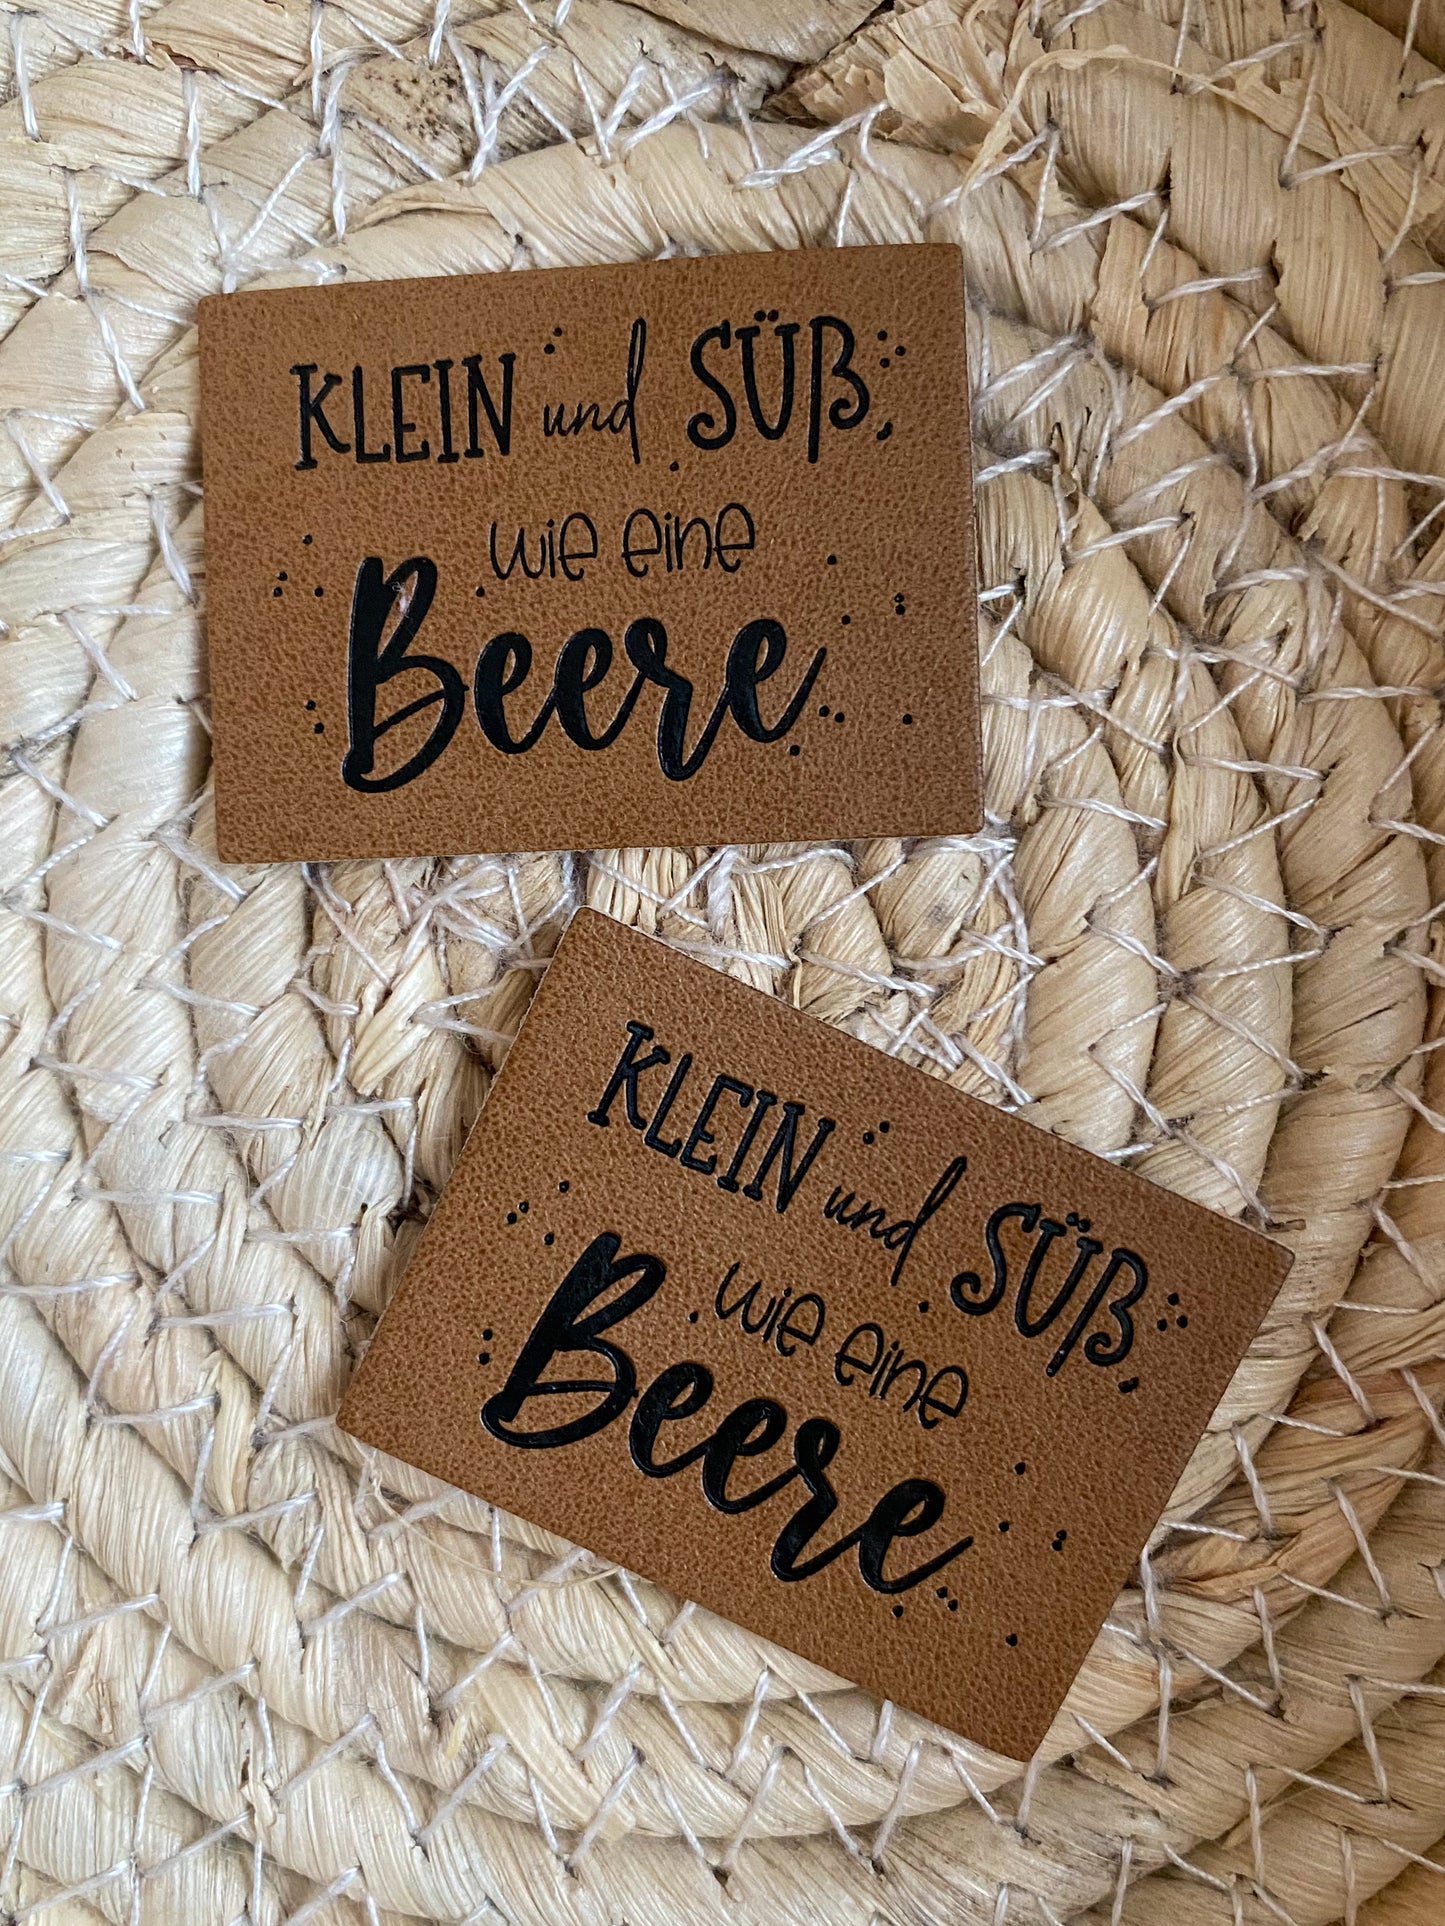 KLEIN und SÜß
wie eine
Beere
KLEIN und SÜß
wie eine
Beere